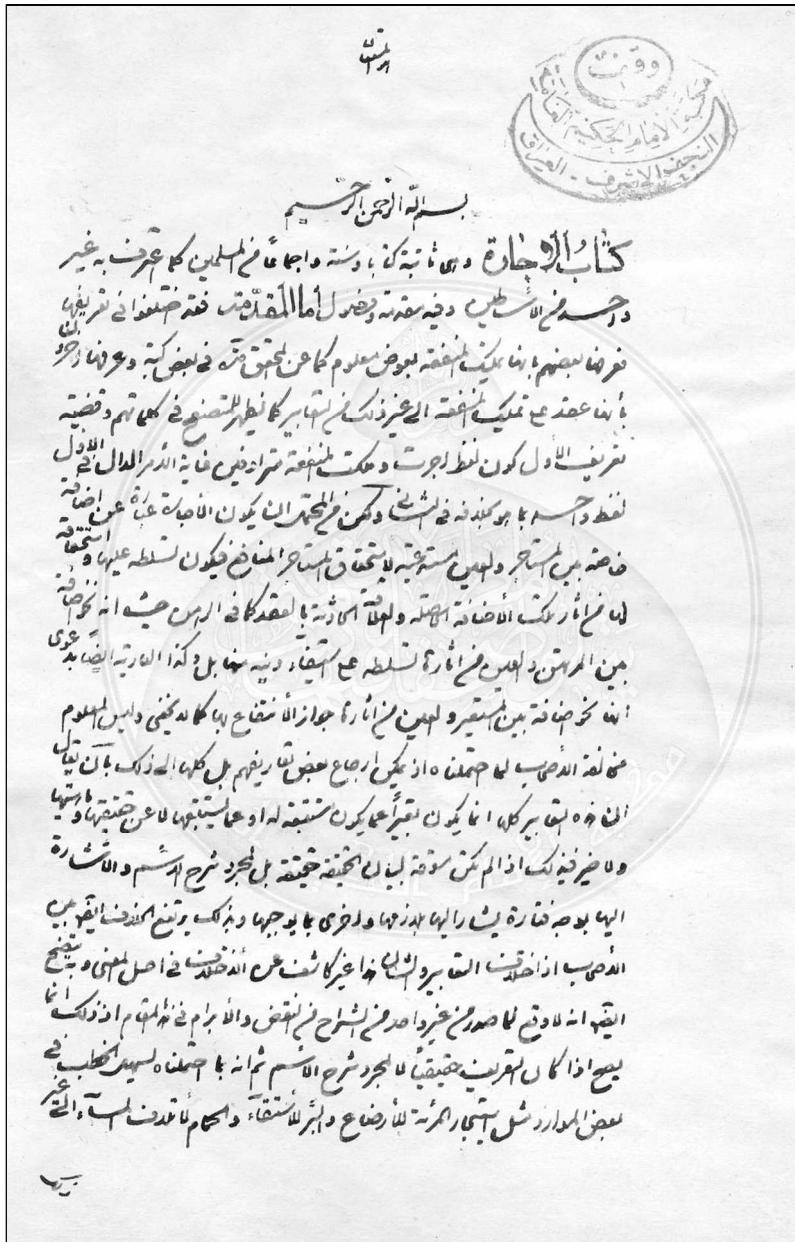 وقف
مكتبة الإمام الحكيم العامة
النجف الأشرف - العراق
بسم الله الرحمن الرحيم
كتاب الإجارة وهى ثابتة كتابا وسنة واجماعاً من المسلمين كما اعترف به غير
واحد من الأساطين وفيه مقدمة وفصول أما المقدمة فقد اختلفوا فى تعريفها
فعرفها بعضهم بانها تمليك المنفعة بعوض معلوم كما عن المحقق فى بعض كتبه وعرفها آخرون
بأنها عقد على تمليك المنفعة الى غير ذلك من التعابير كما يظهر للمتصفح فى كلماتهم وقضية
تعريف الأول كون لفظ آجرت وملكت المنفعة مترادفين غاية الأمر الدال فى الاول
لفظ واحد بما هو بخلافه فى الثانى ولكن من المحتمل ان يكون الأجارة عبارة عن اضافة
خاصة بين المستاجر والعين مستدعية لاستحقاق المستاجر المنافع فيكون تسلطه عليها واستحقاقه
لها من آثار تلك الأضافة الحاصلة والعلاقة الحادثة بالعقد كما فى الرهن حيث انه نحو اضافة
بين المرتهن والعين من آثارها تسلطه على استيفاء دينه منها بل وكذا العارية ايضاً بدعوى
انها نحو اضافة بين المستعير والعين من آثارها جواز الأنتفاع بها كما لا يخفى وليس المعلوم
مخالفة الأصحاب لما احتملناه اذ يمكن ارجاع بعض تعاريفهم بل كلها الى ذلك بأن يقال
ان هذه التعابير كلها انما يكون تعبيراً عما يكون مستتبعة له او عما يستتبعها لا عن حقيقتها وماهيتها
ولا ضير فى ذلك اذا لم تكن مسوقة لبيان الحقيقة حقيقة بل لمجرد شرح الأسم والأشارة
اليها بوجه فتارة يشار اليها بلازمها واخرى بما يوجبها وبذلك يرتفع الخلاف ايضا من بين
الأصحاب اذ اختلاف التعابير والشأن هذا غير كاشف عن الأختلاف فى اصل المعنى وبه يتضح
ايضا انه لا وقع لما صدر من غير واحد من الشراح من النقض والأبرام فى المقام اذ ذلك انما
يصح اذا كان التعريف حقيقياً لا لمجرد شرح الأسم ثم انه بما احتملناه يسهل الخطب فى
بعض الموارد مثل استيجار المرئة للأرضاع والبئر للأستقاء والحمام لأتلاف الماء الى غير